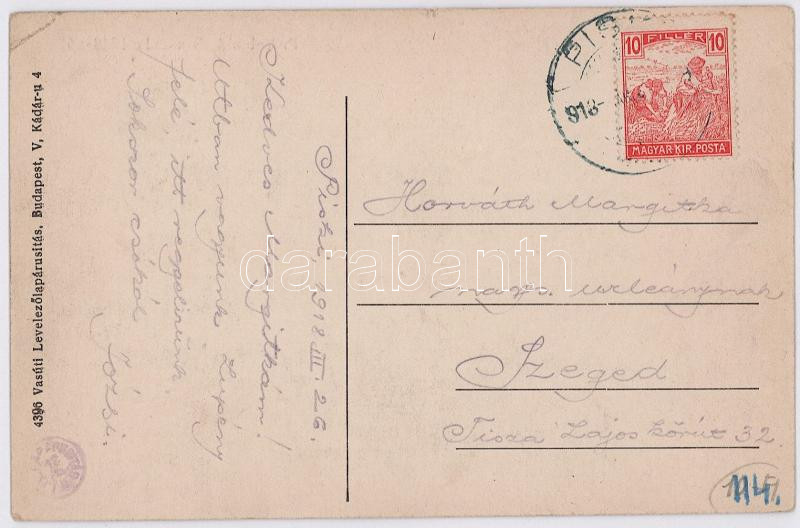 4396 Vasúti Levelezőlapárusítás, Budapest, V, Kádár-u 4
Piski, 918 III. 26.
Kedves Margitkám!
Utban vagyunk Lupény
felé, itt reggelizünk.
Sokszor csókol
Józsi.
PIS
918
10 FILLÉR 10
MAGYAR KIR. POSTA
Horváth Margitka
nagys. urleánynak
Szeged
Tisza Lajos körút 32
darabanth
114.